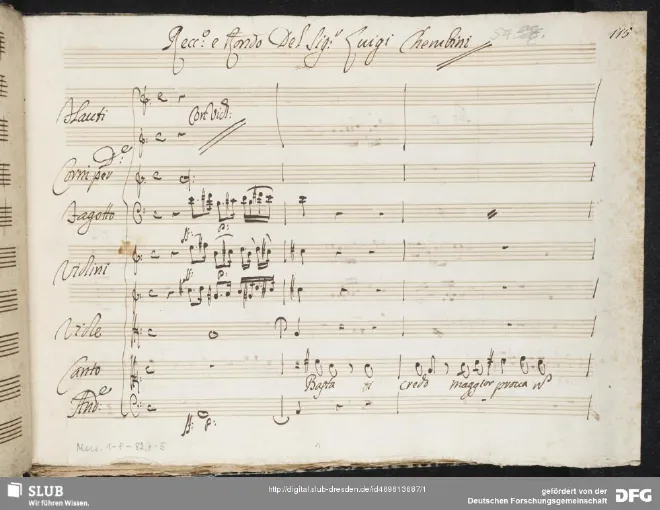 Recc.º e Rondo Del Sig.r Luigi Cherubini
115
Flauti
Con Viol:
Corni per D.e
Fagotto
ff: p:
Violini
ff: p:
Viole
Canto
Basta ti credo maggior prova
And.e
ff: p:
Mus. 1-F-82,4-5
SLUB
Wir führen Wissen.
http://digital.slub-dresden.de/id469613687/1
gefördert von der
Deutschen Forschungsgemeinschaft
DFG